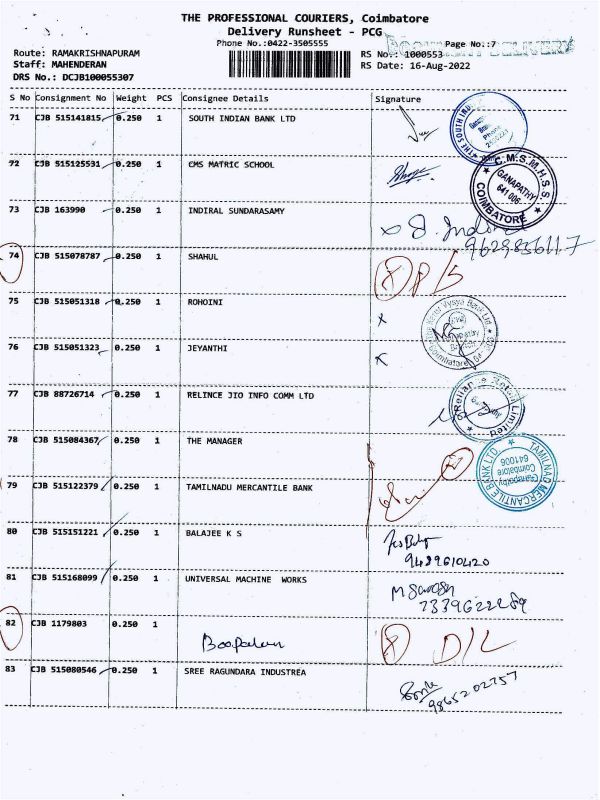 THE PROFESSIONAL COURIERS, Coimbatore
Delivery Runsheet - PCG
Phone No.:0422-3505555
DOCUMENT DELIVERY
Page No.:7
Route: RAMAKRISHNAPURAM
RS No.: 1000553
Staff: MAHENDERAN
RS Date: 16-Aug-2022
DRS No.: DCJB100055307
S No Consignment No Weight PCS Consignee Details Signature
71 CJB 515141815 0.250 1 SOUTH INDIAN BANK LTD
THE SOUTH IND
72 CJB 515125531 0.250 1 CMS MATRIC SCHOOL
C.M.S.M.H.S.S.
GANAPATHY
641 006
COIMBATORE
73 CJB 163990 0.250 1 INDIRAL SUNDARASAMY
9629836117
74 CJB 515078787 0.250 1 SHAHUL
75 CJB 515051318 0.250 1 ROHOINI
x
76 CJB 515051323 0.250 1 JEYANTHI
77 CJB 88726714 0.250 1 RELINCE JIO INFO COMM LTD
Reliance Retail Limited
78 CJB 515084367 0.250 1 THE MANAGER
TAMILNAD MERCANTILE BANK LTD
Ganapathy
Coimbatore
641006
79 CJB 515122379 0.250 1 TAMILNADU MERCANTILE BANK
80 CJB 515151221 0.250 1 BALAJEE K S
9489610420
81 CJB 515168099 0.250 1 UNIVERSAL MACHINE WORKS
82 CJB 1179803 0.250 1
Boopalan
D/L
83 CJB 515080546 0.250 1 SREE RAGUNDARA INDUSTREA
9865202757